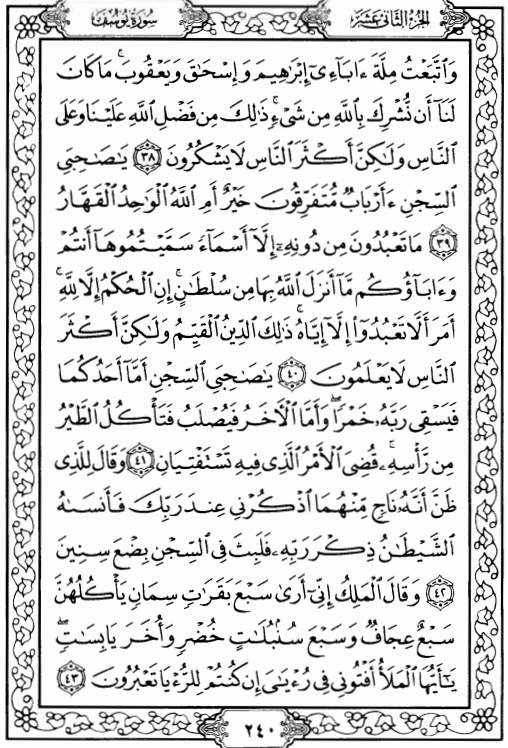 الجزء الثاني عشر
سورة يوسف
وَٱتَّبَعْتُ مِلَّةَ ءَابَآءِىٓ إِبْرَٰهِيمَ وَإِسْحَٰقَ وَيَعْقُوبَ ۚ مَا كَانَ
لَنَآ أَن نُّشْرِكَ بِٱللَّهِ مِن شَىْءٍ ۚ ذَٰلِكَ مِن فَضْلِ ٱللَّهِ عَلَيْنَا وَعَلَى
ٱلنَّاسِ وَلَٰكِنَّ أَكْثَرَ ٱلنَّاسِ لَا يَشْكُرُونَ ٣٨ يَٰصَٰحِبَىِ
ٱلسِّجْنِ ءَأَرْبَابٌ مُّتَفَرِّقُونَ خَيْرٌ أَمِ ٱللَّهُ ٱلْوَٰحِدُ ٱلْقَهَّارُ
٣٩ مَا تَعْبُدُونَ مِن دُونِهِۦٓ إِلَّآ أَسْمَآءً سَمَّيْتُمُوهَآ أَنتُمْ
وَءَابَآؤُكُم مَّآ أَنزَلَ ٱللَّهُ بِهَا مِن سُلْطَٰنٍ ۚ إِنِ ٱلْحُكْمُ إِلَّا لِلَّهِ ۚ
أَمَرَ أَلَّا تَعْبُدُوٓا۟ إِلَّآ إِيَّاهُ ۚ ذَٰلِكَ ٱلدِّينُ ٱلْقَيِّمُ وَلَٰكِنَّ أَكْثَرَ
ٱلنَّاسِ لَا يَعْلَمُونَ ٤٠ يَٰصَٰحِبَىِ ٱلسِّجْنِ أَمَّآ أَحَدُكُمَا
فَيَسْقِى رَبَّهُۥ خَمْرًا ۖ وَأَمَّا ٱلْءَاخَرُ فَيُصْلَبُ فَتَأْكُلُ ٱلطَّيْرُ
مِن رَّأْسِهِۦ ۚ قُضِىَ ٱلْأَمْرُ ٱلَّذِى فِيهِ تَسْتَفْتِيَانِ ٤١ وَقَالَ لِلَّذِى
ظَنَّ أَنَّهُۥ نَاجٍ مِّنْهُمَا ٱذْكُرْنِى عِندَ رَبِّكَ فَأَنسَىٰهُ
ٱلشَّيْطَٰنُ ذِكْرَ رَبِّهِۦ فَلَبِثَ فِى ٱلسِّجْنِ بِضْعَ سِنِينَ
٤٢ وَقَالَ ٱلْمَلِكُ إِنِّىٓ أَرَىٰ سَبْعَ بَقَرَٰتٍ سِمَانٍ يَأْكُلُهُنَّ
سَبْعٌ عِجَافٌ وَسَبْعَ سُنۢبُلَٰتٍ خُضْرٍ وَأُخَرَ يَابِسَٰتٍ ۖ
يَٰٓأَيُّهَا ٱلْمَلَأُ أَفْتُونِى فِى رُءْيَٰىَ إِن كُنتُمْ لِلرُّءْيَا تَعْبُرُونَ ٤٣
٢٤٠